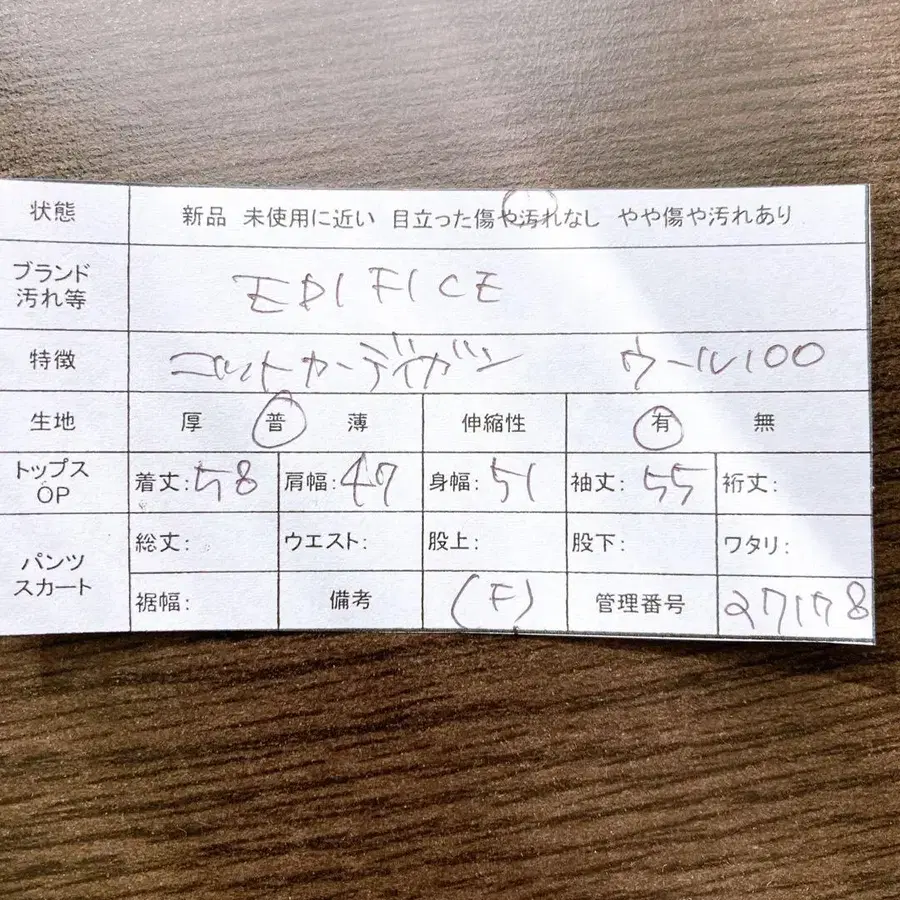 状態 新品 未使用に近い 目立った傷や汚れなし やや傷や汚れあり
ブランド
汚れ等 EDIFICE
特徴 コットカーディガン ウール100
生地 厚 普 薄 伸縮性 有 無
トップス
OP 着丈:58 肩幅:47 身幅:51 袖丈:55 裄丈:
パンツ
スカート 総丈: ウエスト: 股上: 股下: ワタリ:
裾幅: 備考 (F) 管理番号 27178